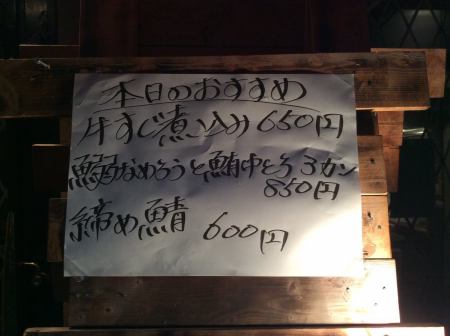 本日のおすすめ
牛すじ煮込み 650円
鰯なめろうと鮪中とろ 3カン
850円
締め鯖 600円